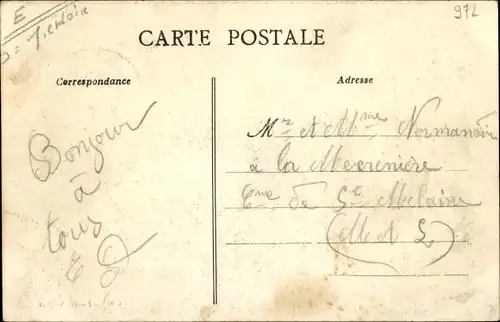 E
972
CARTE POSTALE
Correspondance
Adresse
Bonjour
à
tous
Mr et Mme Normandin
à la
Cne de St Melaine
(M et L)